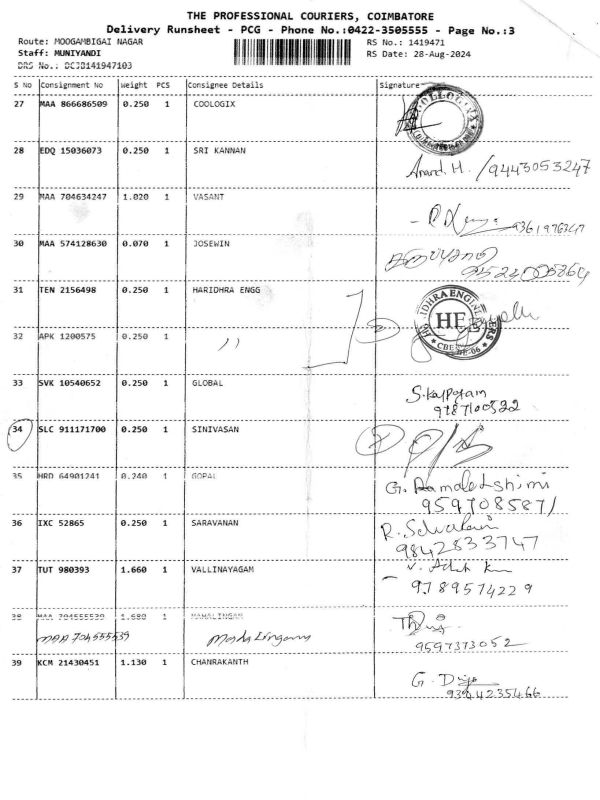 THE PROFESSIONAL COURIERS, COIMBATORE
Delivery Runsheet - PCG - Phone No.:0422-3505555 - Page No.:3
Route: MOOGAMBIGAI NAGAR RS No.: 1419471
Staff: MUNIYANDI RS Date: 28-Aug-2024
DRS No.: DCJB141947103
S No Consignment No Weight PCS Consignee Details Signature
27 MAA 866686509 0.250 1 COOLOGIX
28 EDQ 15036073 0.250 1 SRI KANNAN
Anand H. /9443053247
29 MAA 704634247 1.020 1 VASANT
9361976347
30 MAA 574128630 0.070 1 JOSEWIN
31 TEN 2156498 0.250 1 HARIDHRA ENGG
HARIDHRA ENGINEERS
HE
32 APK 1200575 0.250 1 ,,
33 SVK 10540652 0.250 1 GLOBAL
34 SLC 911171700 0.250 1 SINIVASAN
35 HRD 64901241 0.240 1 GOPAL
G. Ramalakshimi
36 IXC 52865 0.250 1 SARAVANAN
9842833747
37 TUT 980393 1.660 1 VALLINAYAGAM
9789574229
38 MAA 704555539 1.680 1 MAHALINGAM
MAA 704555539 Mahalingam
9597373052
39 KCM 21430451 1.130 1 CHANRAKANTH
G. Divya